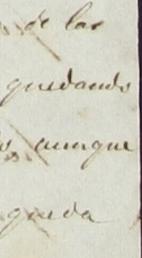 de las
quedando
aunque
queda